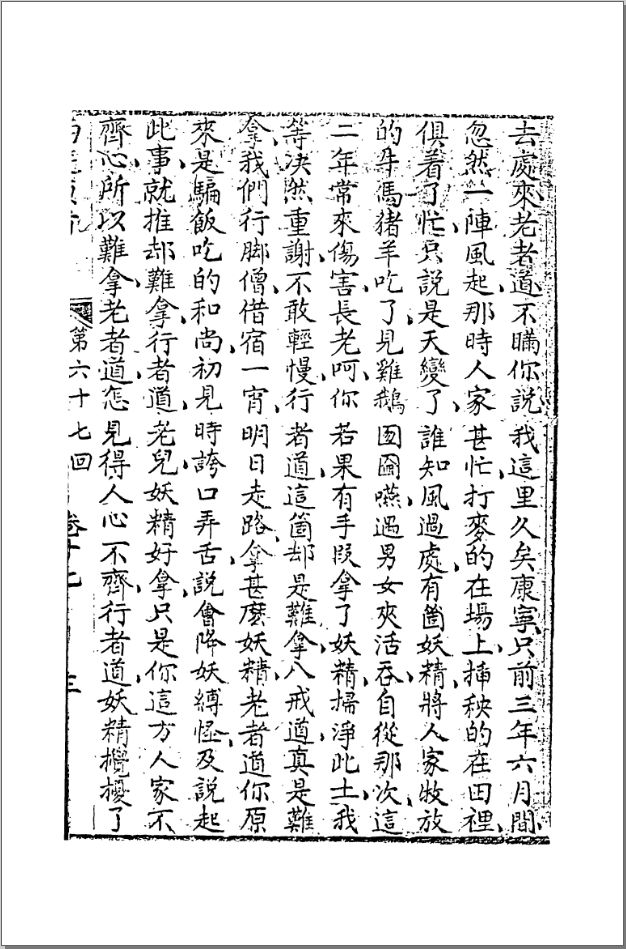 去處來老者道不瞞你說我這里久矣康寧只前三年六月間
忽然一陣風起那時人家甚忙打麥的在場上揷秧的在田裡
俱着了忙只說是天變了誰知風過處有箇妖精將人家牧放
的牛馮猪羊吃了見雞鵝囫圇嚥過男女夾活吞自從那次這
二年常來傷害長老呵你若果有手段拿了妖精掃淨此土我
等决然重謝不敢輕慢行者道這箇却是難拿八戒道真是難
拿我們行脚僧借宿一宵明日走路拿甚麽妖精老者道你原
來是騙飯吃的和尚初見時誇口弄舌說會降妖縛怪及說起
此事就推却難拿行者道老兒妖精好拿只是你這方人家不
齊心所以難拿老者道怎見得人心不齊行者道妖精攪擾了
第六十七回